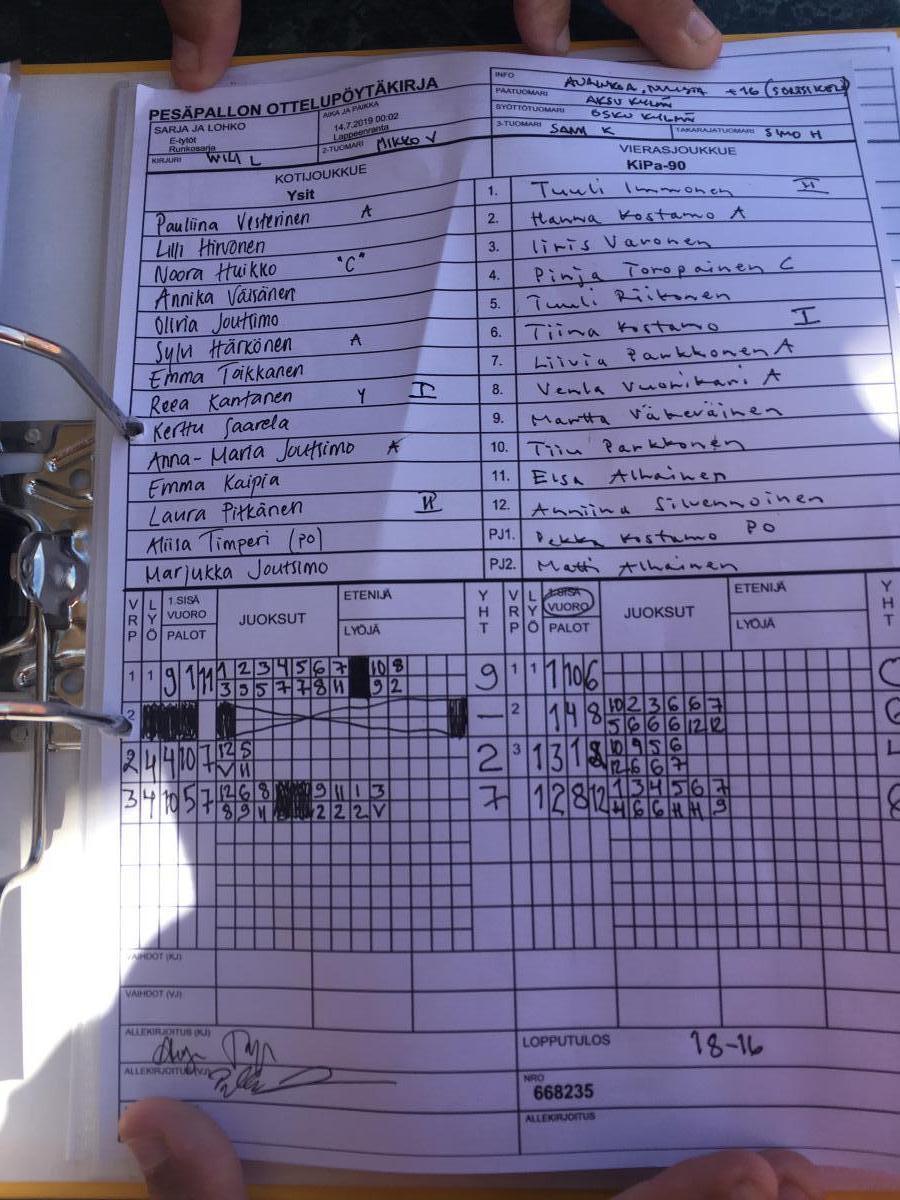 PESÄPALLON OTTELUPÖYTÄKIRJA
SARJA JA LOHKO
E-tytöt
Runkosarja
AIKA JA PAIKKA
14.7.2019 00:02
Lappeenranta
KIRJURI
2-TUOMARI Mikko V
INFO
PÄÄTUOMARI AKSU
SYÖTTÖTUOMARI OSKU
3-TUOMARI SAMI K TAKARAJATUOMARI SIMO H
KOTIJOUKKUE
Ysit
VIERASJOUKKUE
KiPa-90
Pauliina Vesterinen A 1. Tuuli Immonen II
Lilli Hirvonen 2. Hanna Kostamo A
Noora Huikko "C" 3. Iiris Varonen
Annika Väisänen 4. Pinja Toropainen C
Olivia Joutsimo 5. Tuuli Riikonen
Sylvi Härkönen A 6. Tiina Kostamo I
Emma Toikkanen 7. Liivia Parkkonen A
Reea Kantanen Y I 8. Venla Vuorikari A
Kerttu Saarela 9. Martta Väkeväinen
Anna-Maria Joutsimo A 10. Tiiu Parkkonen
Emma Kaipia 11. Elsa Alhainen
Laura Pitkänen II 12. Anniina Silvennoinen
Aliisa Timperi (PO) PJ1. Pekka Kostamo PO
Marjukka Joutsimo PJ2. Matti Alhainen
VRP LYÖ 1.SISÄ VUORO PALOT JUOKSUT ETENIJÄ LYÖJÄ YHT VRP LYÖ 1.SISÄ VUORO PALOT JUOKSUT ETENIJÄ LYÖJÄ YHT
1 1 9 1 11 1 2 3 4 5 6 7 10 8 9 1 1 1 10 6
3 5 5 7 7 8 11 9 2
2 — 2 1 4 8 10 2 3 6 6 7
5 6 6 6 12 12
2 4 4 10 7 12 5 2 3 1 3 1 8 10 9 5 6
V 11 12 6 6 7
3 4 10 5 7 12 6 8 9 11 1 3 7 1 2 8 12 1 3 4 5 6 7
8 9 11 2 2 2 V 4 6 6 11 11 9
VAIHDOT (KJ)
VAIHDOT (VJ)
ALLEKIRJOITUS (KJ)
ALLEKIRJOITUS (VJ)
LOPPUTULOS 18-16
NRO
668235
ALLEKIRJOITUS